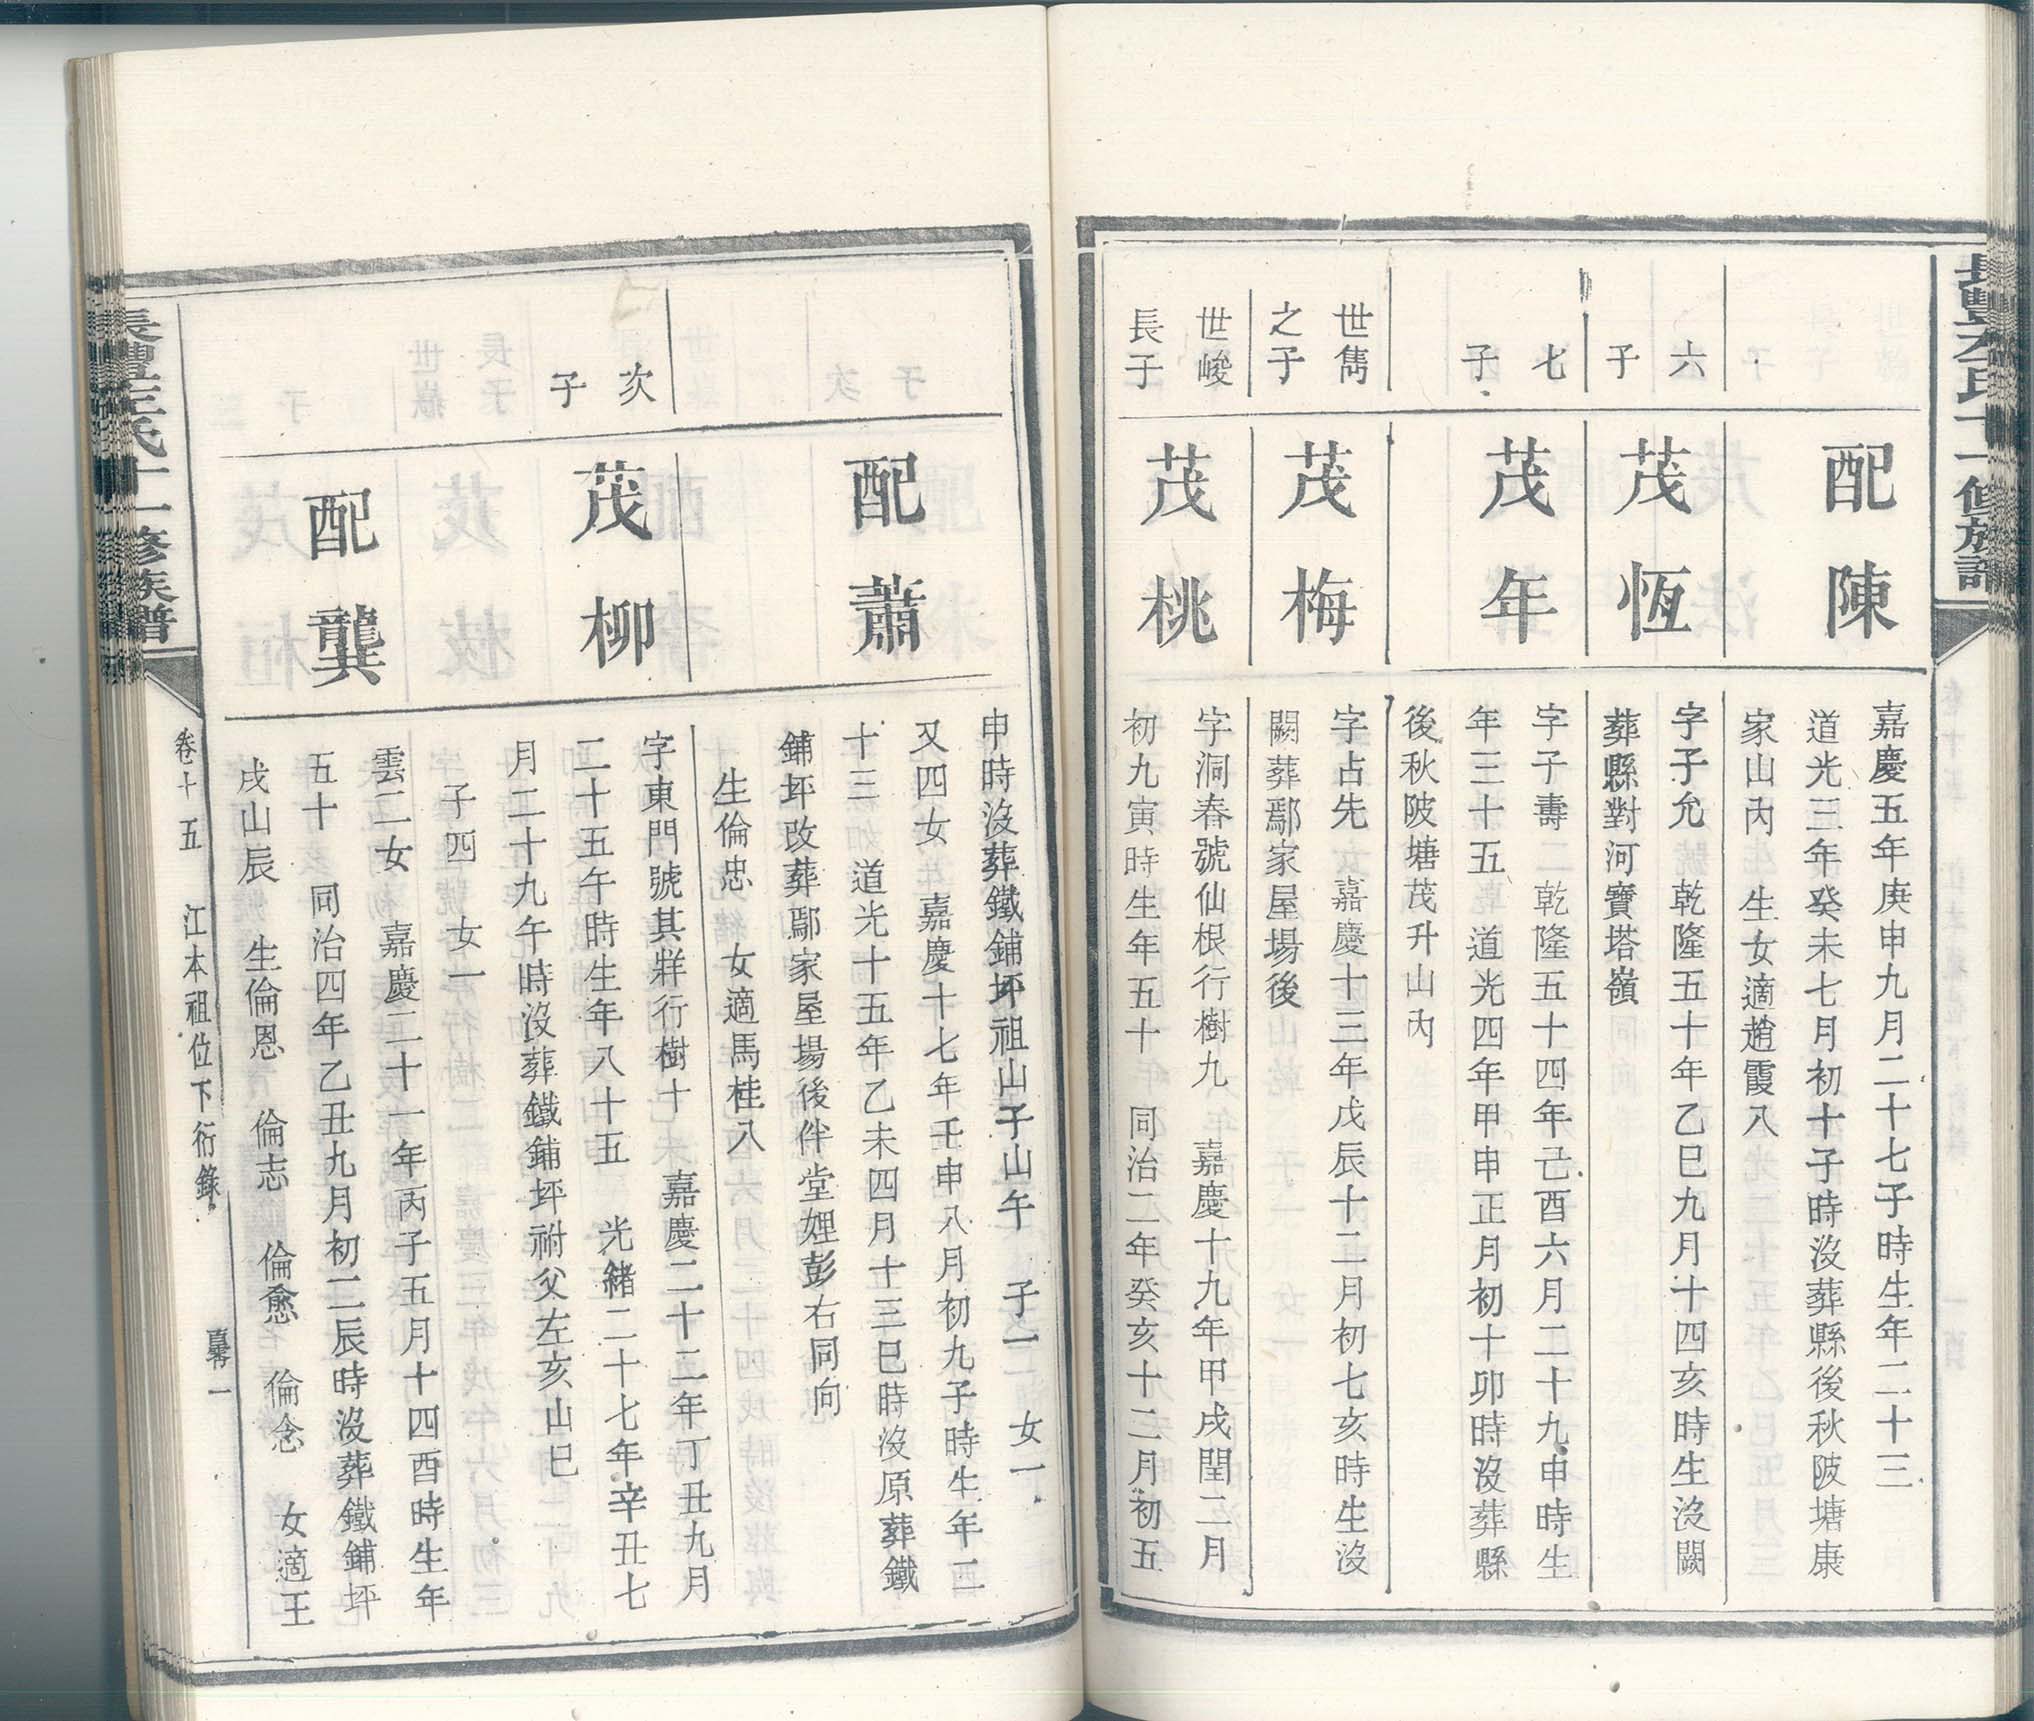 配陳
嘉慶五年庚申九月二十七子時生年二十三
道光三年癸未七月初十子時沒葬縣後秋陂塘康
家山內 生女適趙霞八
六
子
茂恆
字子允 乾隆五十年乙巳九月十四亥時生沒闕
葬縣對河寶塔嶺
七
子
茂年
字子壽 乾隆五十四年己酉六月二十九申時生
年三十五 道光四年甲申正月初十卯時沒葬縣
後秋陂塘茂升山內
世雋
之子
茂梅
字占先 嘉慶十三年戊辰十二月初七亥時生沒
闕葬鄢家屋場後
世峻
長子
茂桃
字洞春號仙根行樹九 嘉慶十九年甲戌閏二月
初九寅時生年五十 同治二年癸亥十二月初五
申時沒葬鐵鋪坪祖山子山午 子一 女一
配蕭
又四女 嘉慶十七年壬申八月初九子時生年二
十三 道光十五年乙未四月十三巳時沒原葬鐵
鋪坪改葬鄢家屋場後伴堂娌彭右同向
生倫忠 女適馬桂八
次
子
茂柳
字東門號其牂行樹十 嘉慶二十二年丁丑九月
二十五午時生年八十五 光緒二十七年辛丑七
月二十九午時沒葬鐵鋪坪祔父左亥山巳
子四 女一
配龔
雲二女 嘉慶二十一年丙子五月十四酉時生年
五十 同治四年乙丑九月初二辰時沒葬鐵鋪坪
戌山辰 生倫恩 倫志 倫愈 倫念 女適王
卷十五 江本祖位下衍錄